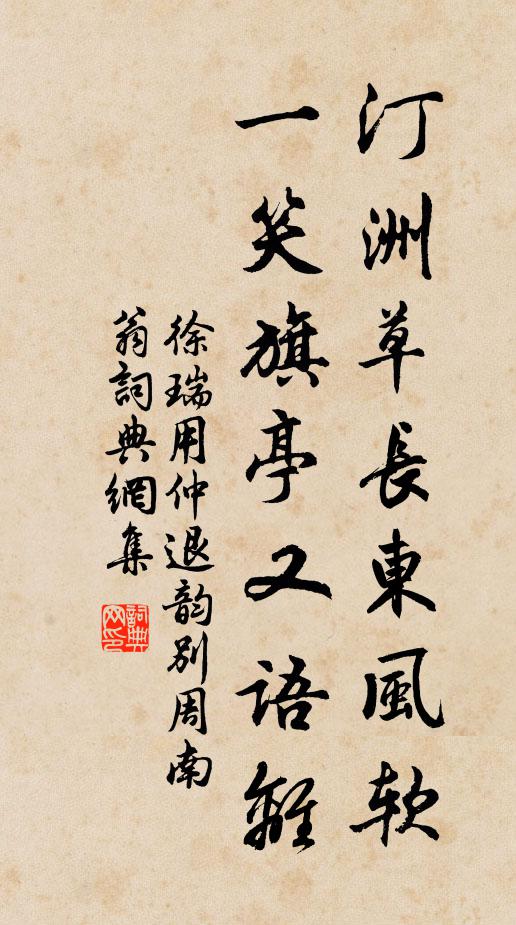 汀洲草長東風軟
一笑旗亭又語離
徐瑞用仲退韵别周南
翁詞典網集
詞典
网印